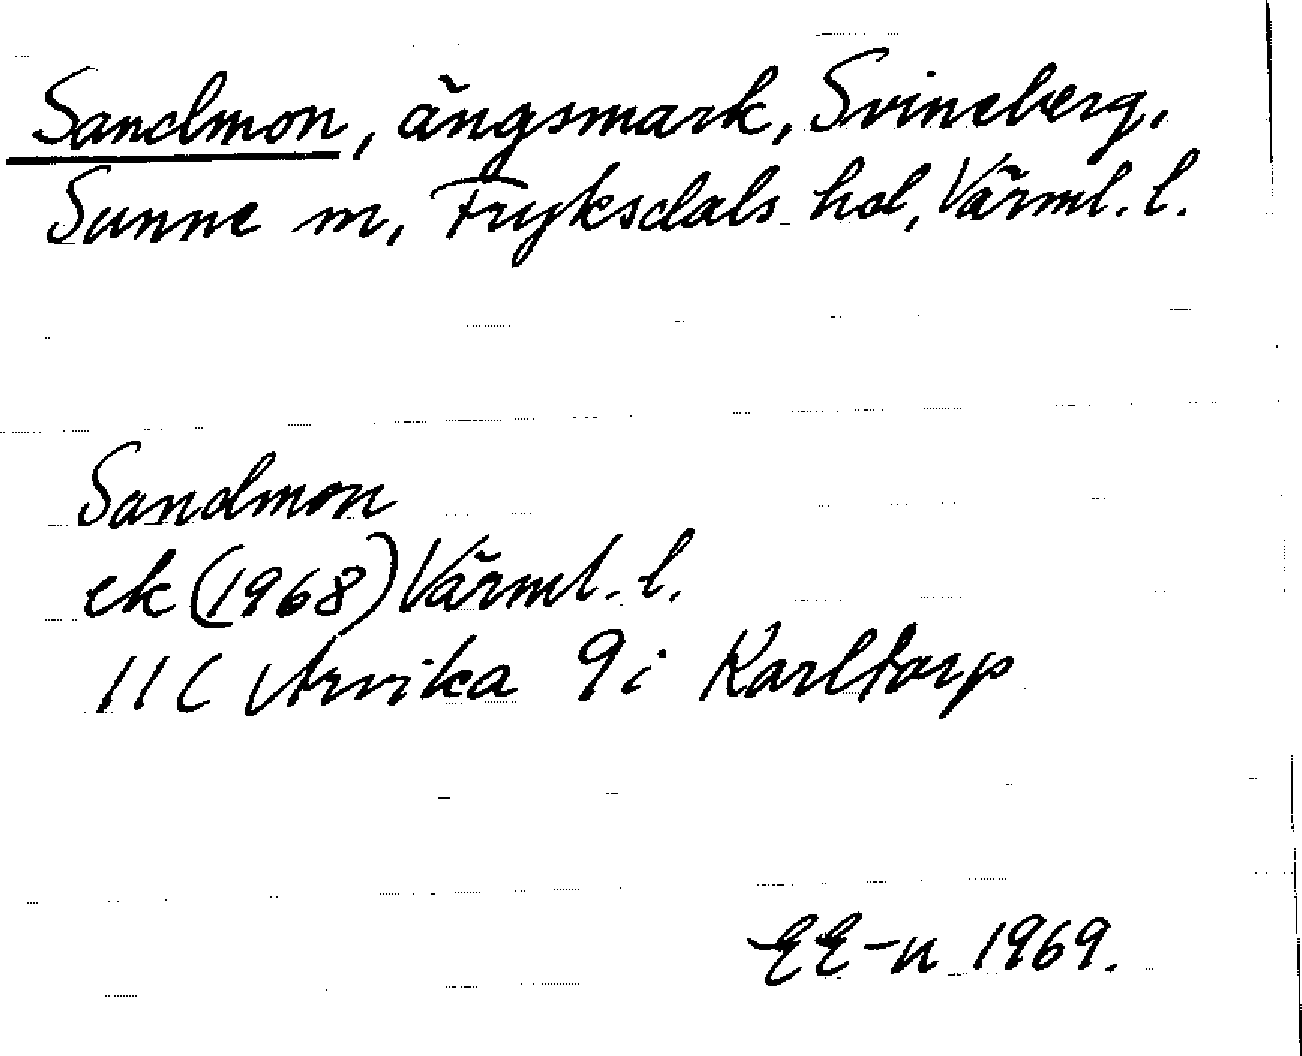 Sandmon, ängsmark, Svineberg,
Sunne m, Fryksdals hd, Värml. l.
Sandmon
ek (1968) Värml. l.
11C Arvika 9i Karltorp
EE-n 1969.